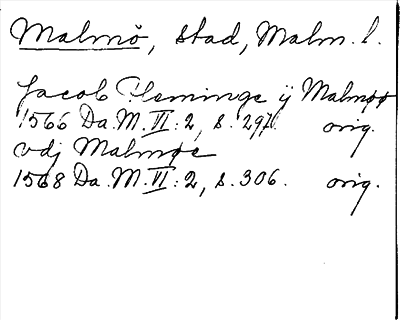 Malmö, stad, Malm. l.
Jacob Fleminge ij Malmøø
1566 Da.M.VI:2, s. 297. orig.
vdj Malmøe
1568 Da.M.VI:2, s. 306. orig.